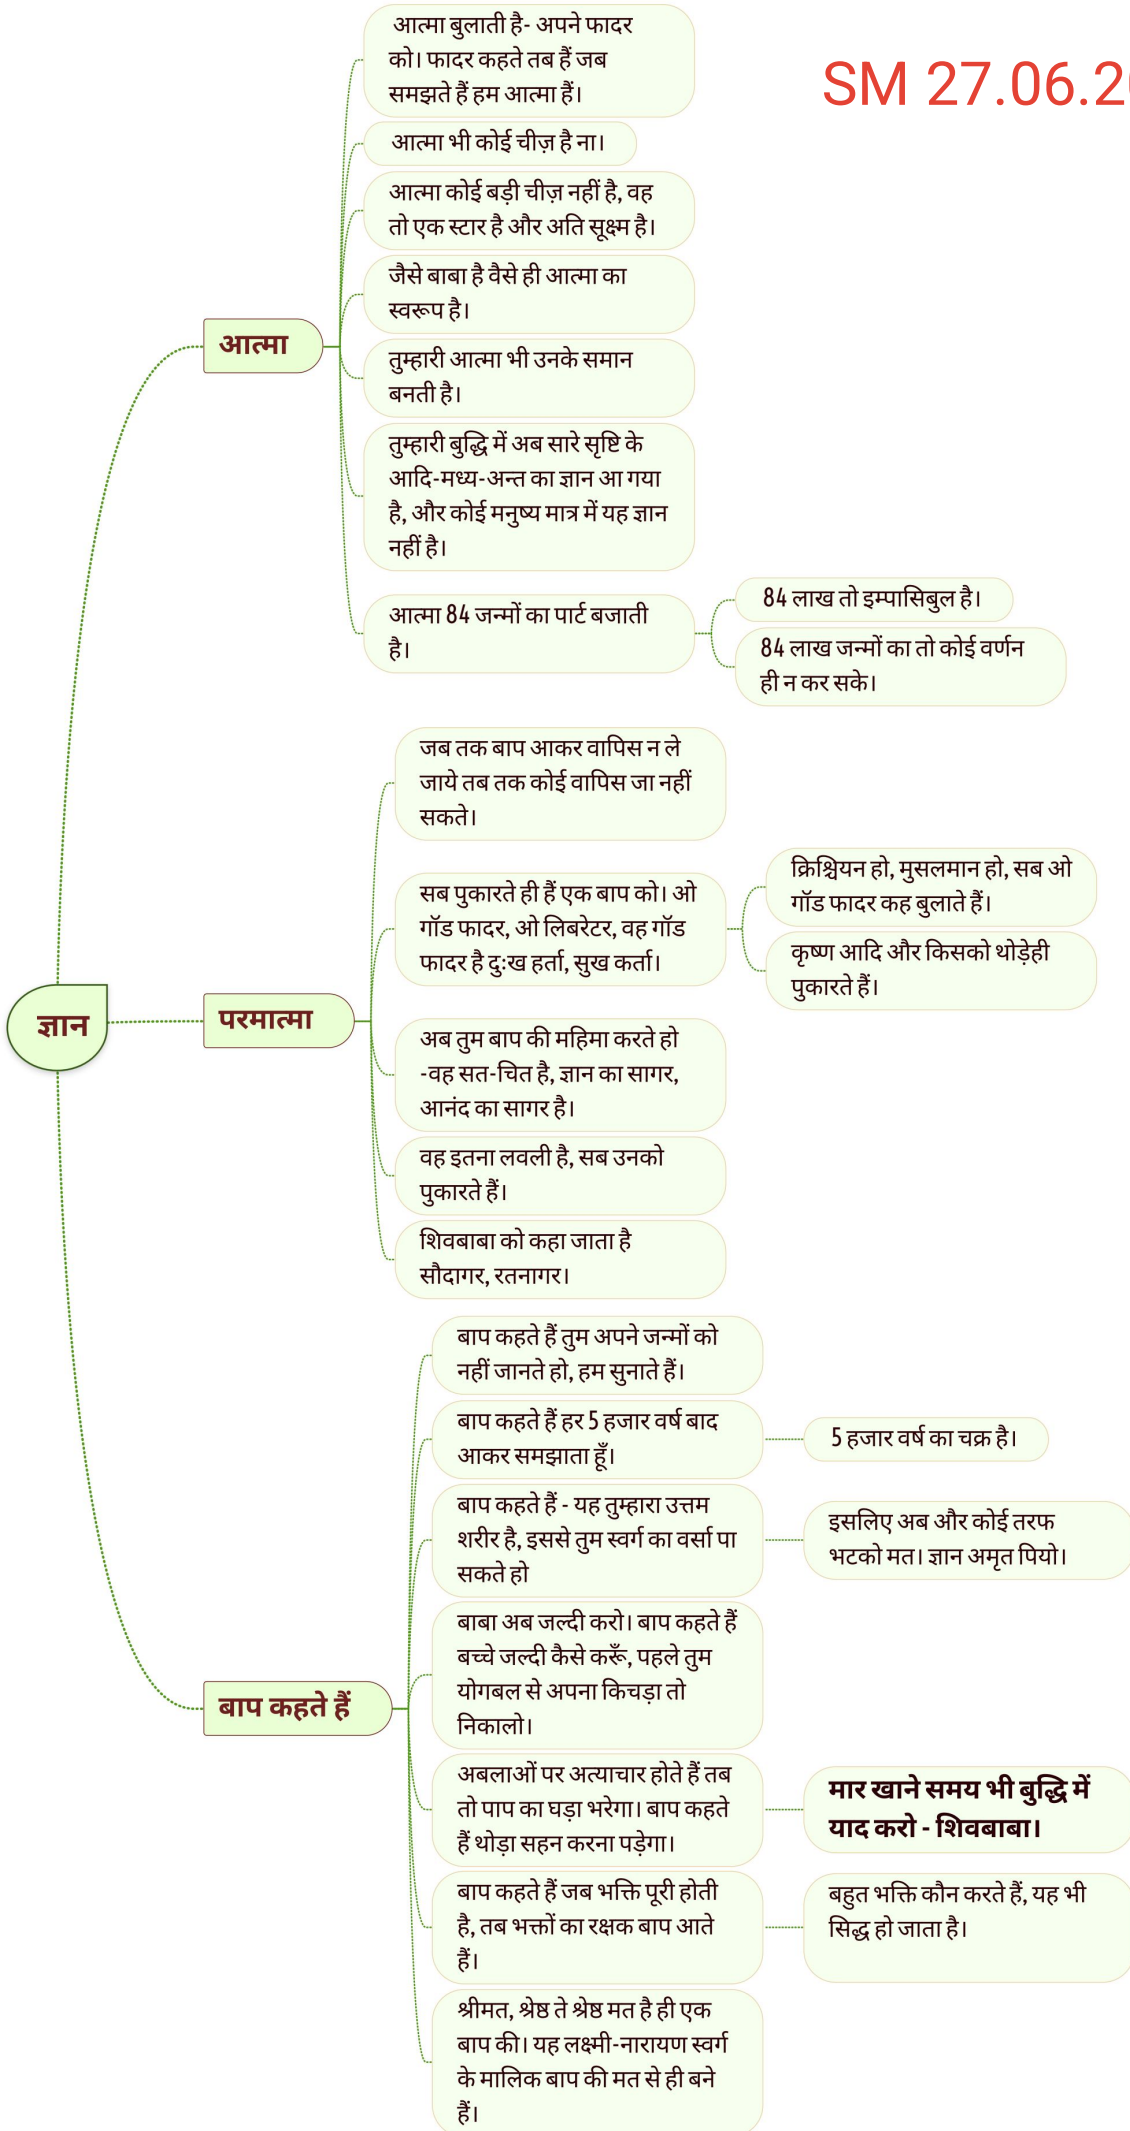 SM 27.06.20
ज्ञान
आत्मा
आत्मा बुलाती है- अपने फादर
को। फादर कहते तब हैं जब
समझते हैं हम आत्मा हैं।
आत्मा भी कोई चीज़ है ना।
आत्मा कोई बड़ी चीज़ नहीं है, वह
तो एक स्टार है और अति सूक्ष्म है।
जैसे बाबा है वैसे ही आत्मा का
स्वरूप है।
तुम्हारी आत्मा भी उनके समान
बनती है।
तुम्हारी बुद्धि में अब सारे सृष्टि के
आदि-मध्य-अन्त का ज्ञान आ गया
है, और कोई मनुष्य मात्र में यह ज्ञान
नहीं है।
आत्मा 84 जन्मों का पार्ट बजाती
है।
84 लाख तो इम्पासिबुल है।
84 लाख जन्मों का तो कोई वर्णन
ही न कर सके।
परमात्मा
जब तक बाप आकर वापिस न ले
जाये तब तक कोई वापिस जा नहीं
सकते।
सब पुकारते ही हैं एक बाप को। ओ
गॉड फादर, ओ लिबरेटर, वह गॉड
फादर है दुःख हर्ता, सुख कर्ता।
क्रिश्चियन हो, मुसलमान हो, सब ओ
गॉड फादर कह बुलाते हैं।
कृष्ण आदि और किसको थोड़ेही
पुकारते हैं।
अब तुम बाप की महिमा करते हो
-वह सत-चित है, ज्ञान का सागर,
आनंद का सागर है।
वह इतना लवली है, सब उनको
पुकारते हैं।
शिवबाबा को कहा जाता है
सौदागर, रतनागर।
बाप कहते हैं
बाप कहते हैं तुम अपने जन्मों को
नहीं जानते हो, हम सुनाते हैं।
बाप कहते हैं हर 5 हजार वर्ष बाद
आकर समझाता हूँ।
5 हजार वर्ष का चक्र है।
बाप कहते हैं - यह तुम्हारा उत्तम
शरीर है, इससे तुम स्वर्ग का वर्सा पा
सकते हो
इसलिए अब और कोई तरफ
भटको मत। ज्ञान अमृत पियो।
बाबा अब जल्दी करो। बाप कहते हैं
बच्चे जल्दी कैसे करूँ, पहले तुम
योगबल से अपना किचड़ा तो
निकालो।
अबलाओं पर अत्याचार होते हैं तब
तो पाप का घड़ा भरेगा। बाप कहते
हैं थोड़ा सहन करना पड़ेगा।
मार खाने समय भी बुद्धि में
याद करो - शिवबाबा।
बाप कहते हैं जब भक्ति पूरी होती
है, तब भक्तों का रक्षक बाप आते
हैं।
बहुत भक्ति कौन करते हैं, यह भी
सिद्ध हो जाता है।
श्रीमत, श्रेष्ठ ते श्रेष्ठ मत है ही एक
बाप की। यह लक्ष्मी-नारायण स्वर्ग
के मालिक बाप की मत से ही बने
हैं।